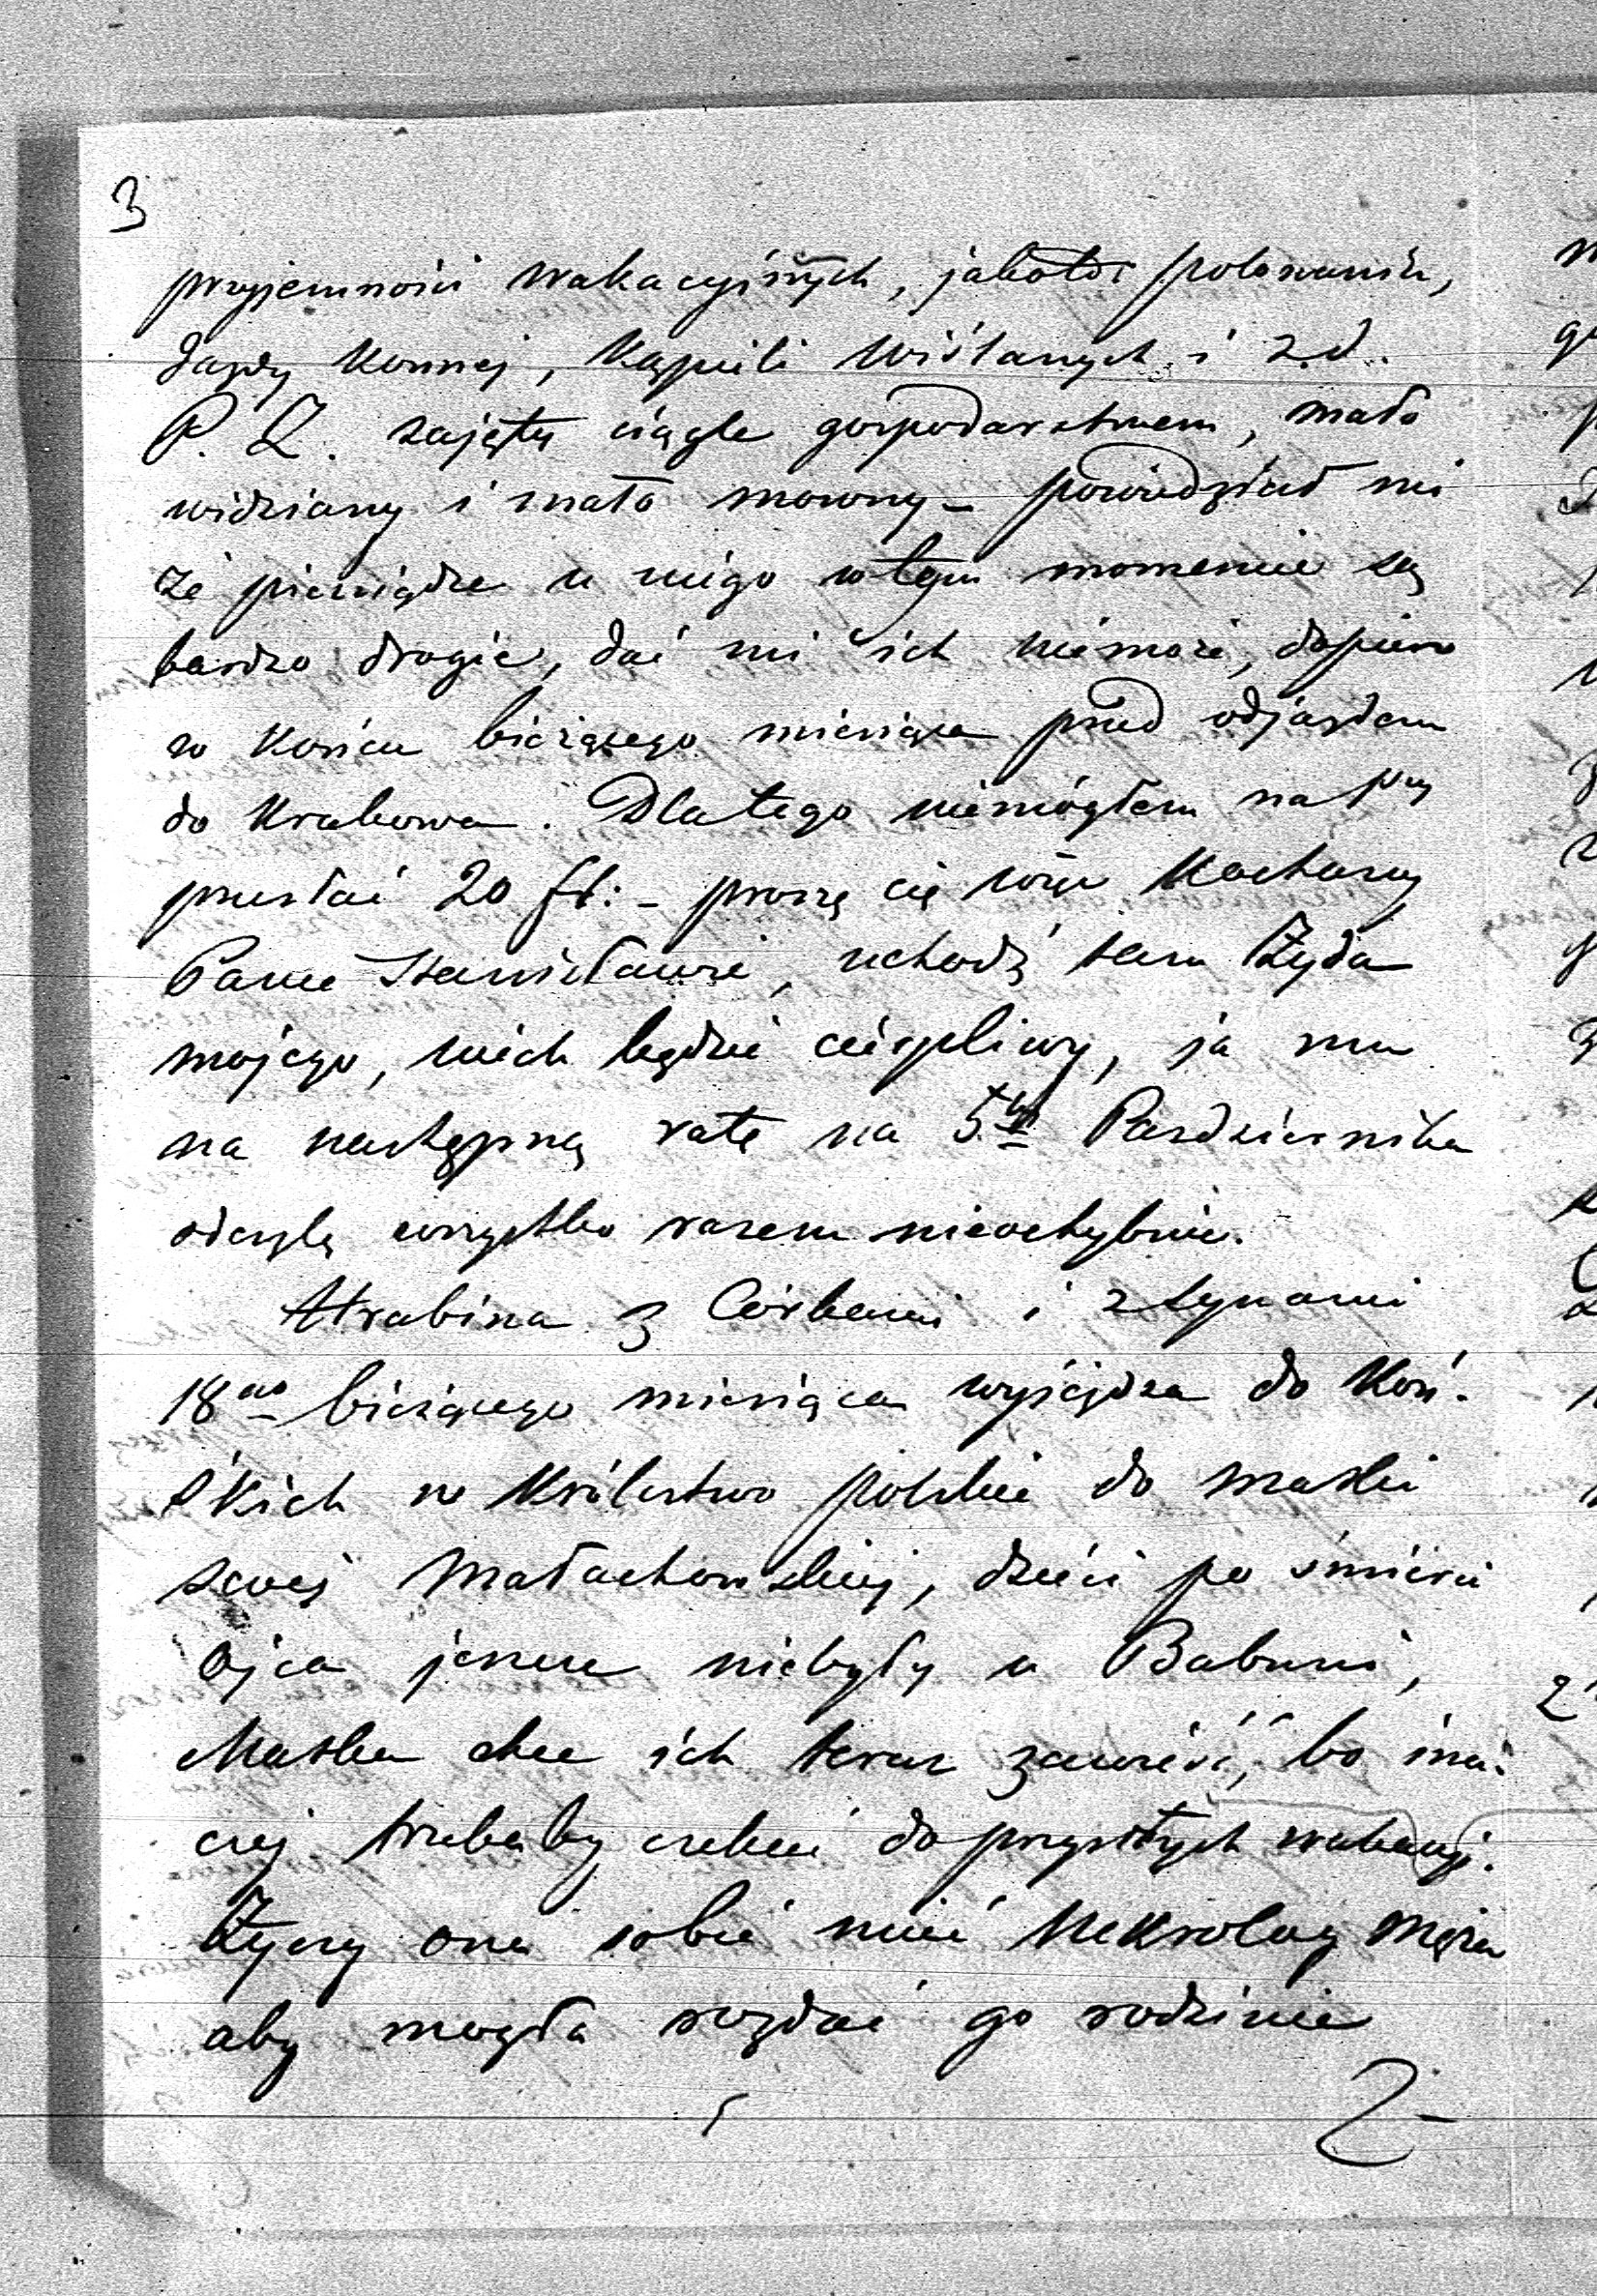 3
przyjemności wakacyjnych, jakoto: polowania,
Jazdy konnej, kąpieli Wiślanych i t.d.
P. Z. zajęty ciągle gospodarstwem, mało
widziany i mało mowny – powiedział mi
że pieniądze u niego w tym momencie są
bardzo drogie, dać mi ich niemoże, dopiero
w końcu bieżącego miesiąca przed odjazdem
do Krakowa. Dlatego niemógłem na
przesłać 20 fl: – proszę cię więc Kochany
Panie Stanisławie, uchodź tam Żyda
mojego, niech będzie cierpliwy, ja mu
na następną ratę na 5 Pazdziernika
odeszlę wszystko razem nieochybnie.
Hrabina z Córkami i z synami
18go bieżącego miesiąca wyjeżdża do Koń-
skich w Królestwo polskie do matki
swej Małachowskiej, dzieci po śmierci
Ojca jeszcze niebyły u Babuni,
Matka chce ich teraz zawieść, bo ina-
czej trzebaby czekać do przyszłych wakacyj.
Życzy ona sobie mieć Nekrolog Męża
aby mogła rozdać go rodzinie